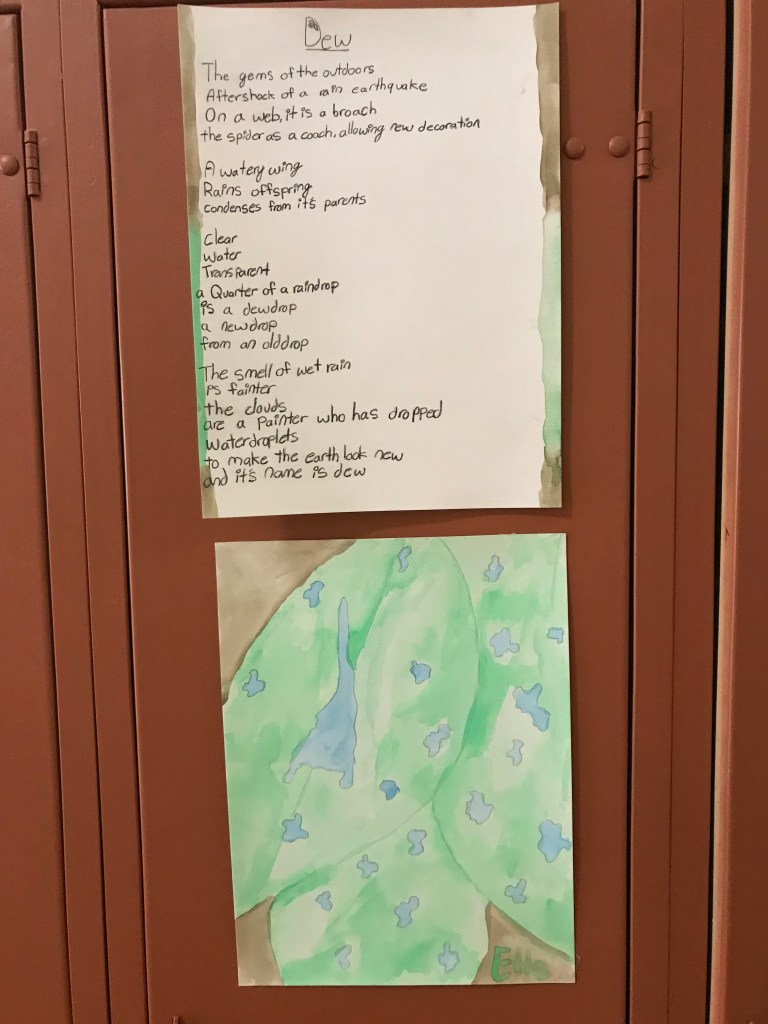 Dew
The gems of the outdoors
Aftershock of a rain earthquake
On a web, it is a broach
the spider as a coach, allowing new decoration
A watery wing
Rains offspring
condenses from it's parents
Clear
Water
Transparent
a Quarter of a raindrop
is a dewdrop
a newdrop
from an olddrop
The smell of wet rain
is fainter
the clouds
are a painter who has dropped
Waterdroplets
to make the earth look new
and it's name is dew